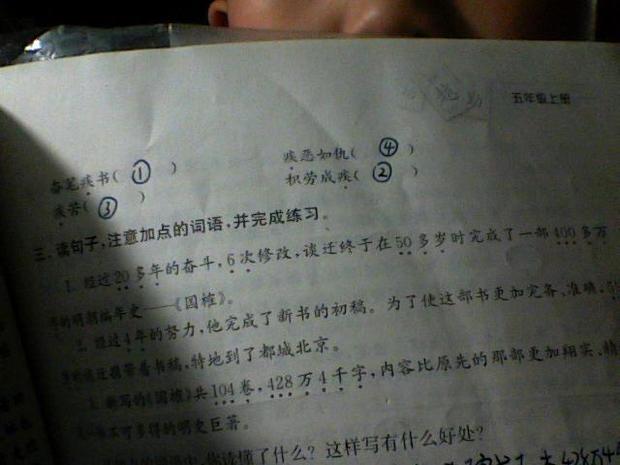 五年级上册
奋笔疾书( ① ) 疾恶如仇( ④ )
疾苦( ③ ) 积劳成疾( ② )
三、读句子,注意加点的词语,并完成练习。
1. 经过20多年的奋斗,6次修改,谈迁终于在50多岁时完成了一部400多万
字的明朝编年史——《国榷》。
2. 经过4年的努力,他完成了新书的初稿。为了使这部书更加完备、准确,
谈迁携带着书稿,特地到了都城北京。
3. 新写的《国榷》共104卷,428万4千字,内容比原先的那部更加翔实、精
一部不可多得的明史巨著。
你读懂了什么?这样写有什么好处?